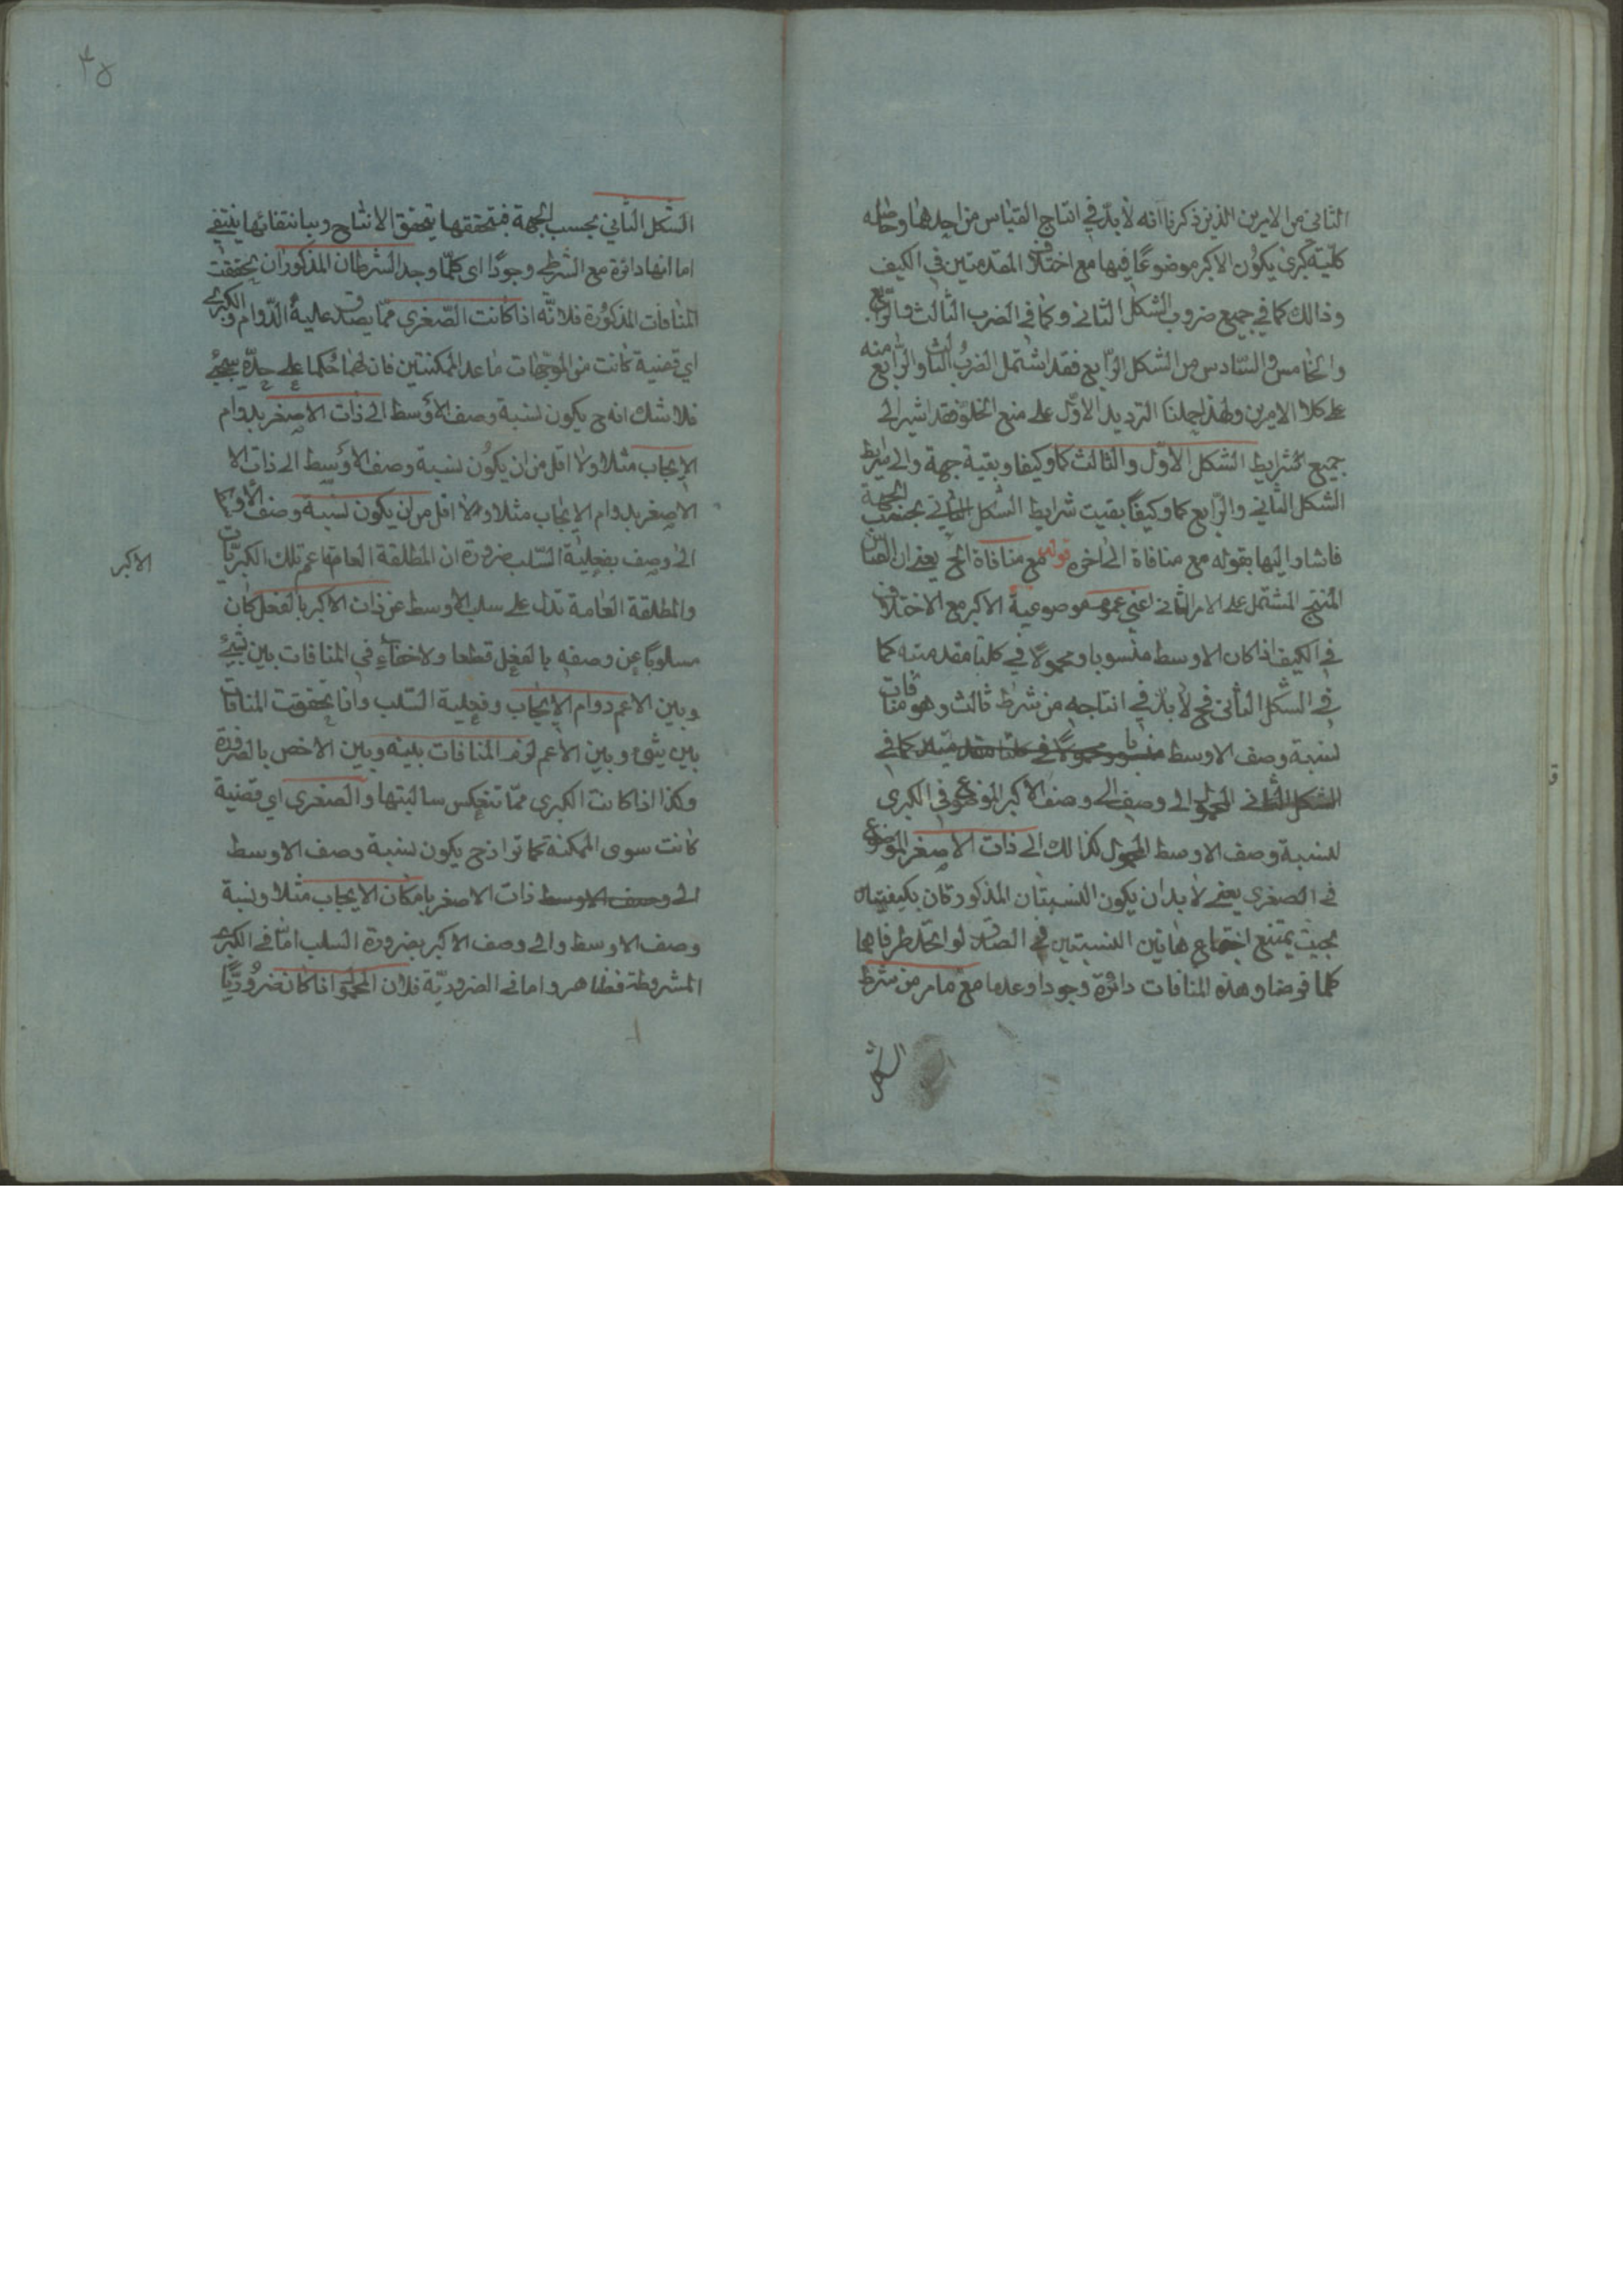 الثاني من الامرين الذين ذكرنا انه لا بدّ في انتاج القياس من احدهما وحاصله
كليّة كبرى يكون الاكبر موضوعًا فيها مع اختلاف المقدمتين في الكيف
وذالك كما في جميع ضروب الشكل الثاني وكما في الضرب الثالث والرّابع
والخامس والسّادس من الشكل الرّابع فقد اشتمل الضرب الثالث والرّابع منه
على كلا الامرين ولهذا حملنا الترديد الاوّل على منع الخلوّ فقد اشير الى
جميع شرايط الشكل الاوّل والثالث كما وكيفا وبقية جهة والى شرايط
الشكل الثاني والرّابع كما وكيفًا بقيت شرايط الشكل الثاني بحسب الجهة
فاشار اليها بقوله مع منافاة الى اخره قوله مع منافاة الخ يعني ان القياس
المنتج المشتمل على الامر الثاني اعني عموم موضوعية الاكبر مع الاختلاف
في الكيف اذا كان الاوسط منسوبا ومحمولا في كلتا مقدمتيه كما
في الشكل الثاني فح لا بدّ في انتاجه من شرط ثالث وهو منافات
نسبة وصف الاوسط منسوبا محمولا في كلتا مقدمتيه كما في
الشكل الثاني المحمول الى وصف الى وصف الاكبر الموضوع في الكبرى
لنسبة وصف الاوسط المحمول كذالك الى ذات الاصغر الموضوع
في الصغرى يعني لا بد ان يكون النسبتان المذكورتان بكيفيتان
بحيث يمتنع اجتماع هاتين النسبتين في الصدق لو اتحد طرفاهما
كما فرضا وهذه المنافات دائرة وجودا وعدما مع ما مر من شرط
الشكل
الشكل الثاني بحسب الجهة فبتحققها يتحقق الانتاج وبانتفائها ينتفي
اما انها دائرة مع الشرط وجودًا اى كلّما وجد الشرطان المذكوران تحققت
المنافات المذكورة فلانّه اذا كانت الصّغرى ممّا يصدق عليه الدّوام والكبرى
اي قضية كانت من الموجّهات ما عدا الممكنتين فان لهما حكما على حدّة سيجئ
فلا شك انه ح يكون نسبة وصف الأوسط الى ذات الاصغر بدوام
الايجاب مثلا ولا اقل من ان يكون نسبة وصف الأوسط الى ذات الا
الاصغر بدوام الايجاب مثلا ولا اقل من ان يكون نسبة وصف الأوسط
الى وصف بفعلية السّلب ضرورة ان المطلقة العامة اعم تلك الكبريّات
الاكبر
والمطلقة العامة تدل على سلب الاوسط عن ذات الاكبر بالفعل كان
مسلوبًا عن وصفه بالفعل قطعا ولا خفاء في المنافات بين شيئ
وبين الاعم دوام الايجاب وفعلية السّلب واذا تحققت المنافات
بين شئ وبين الأعم لزم المنافات بينه وبين الاخص بالضرورة
وكذا اذا كانت الكبرى ممّا تنعكس سالبتها والصغرى اي قضية
كانت سوى الممكنة كما مر اذ ح يكون نسبة وصف الاوسط
الى وصف الاوسط ذات الاصغر بامكان الايجاب مثلا ونسبة
وصف الاوسط والى وصف الاكبر بضرورة السلب امّا في الكبرى
المشروطة فظاهر واما في الضروريّة فلان المحمول اذا كان ضروريًّا